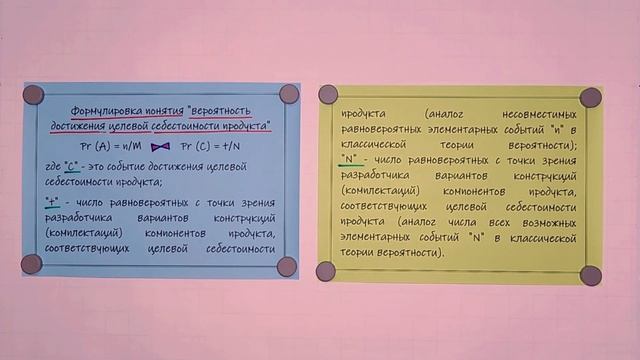 Формулировка понятия "вероятность
достижения целевой себестоимости продукта"
Pr (A) = n/M Pr (C) = +/N
где "С" - это событие достижения целевой
себестоимости продукта;
"+" - число равновероятных с точки зрения
разработчика вариантов конструкций
(комплектаций) компонентов продукта,
соответствующих целевой себестоимости
продукта (аналог несовместимых
равновероятных элементарных событий "n" в
классической теории вероятности);
"N" - число равновероятных с точки зрения
разработчика вариантов конструкций
(комплектаций) компонентов продукта,
соответствующих целевой себестоимости
продукта (аналог числа всех возможных
элементарных событий "N" в классической
теории вероятности).